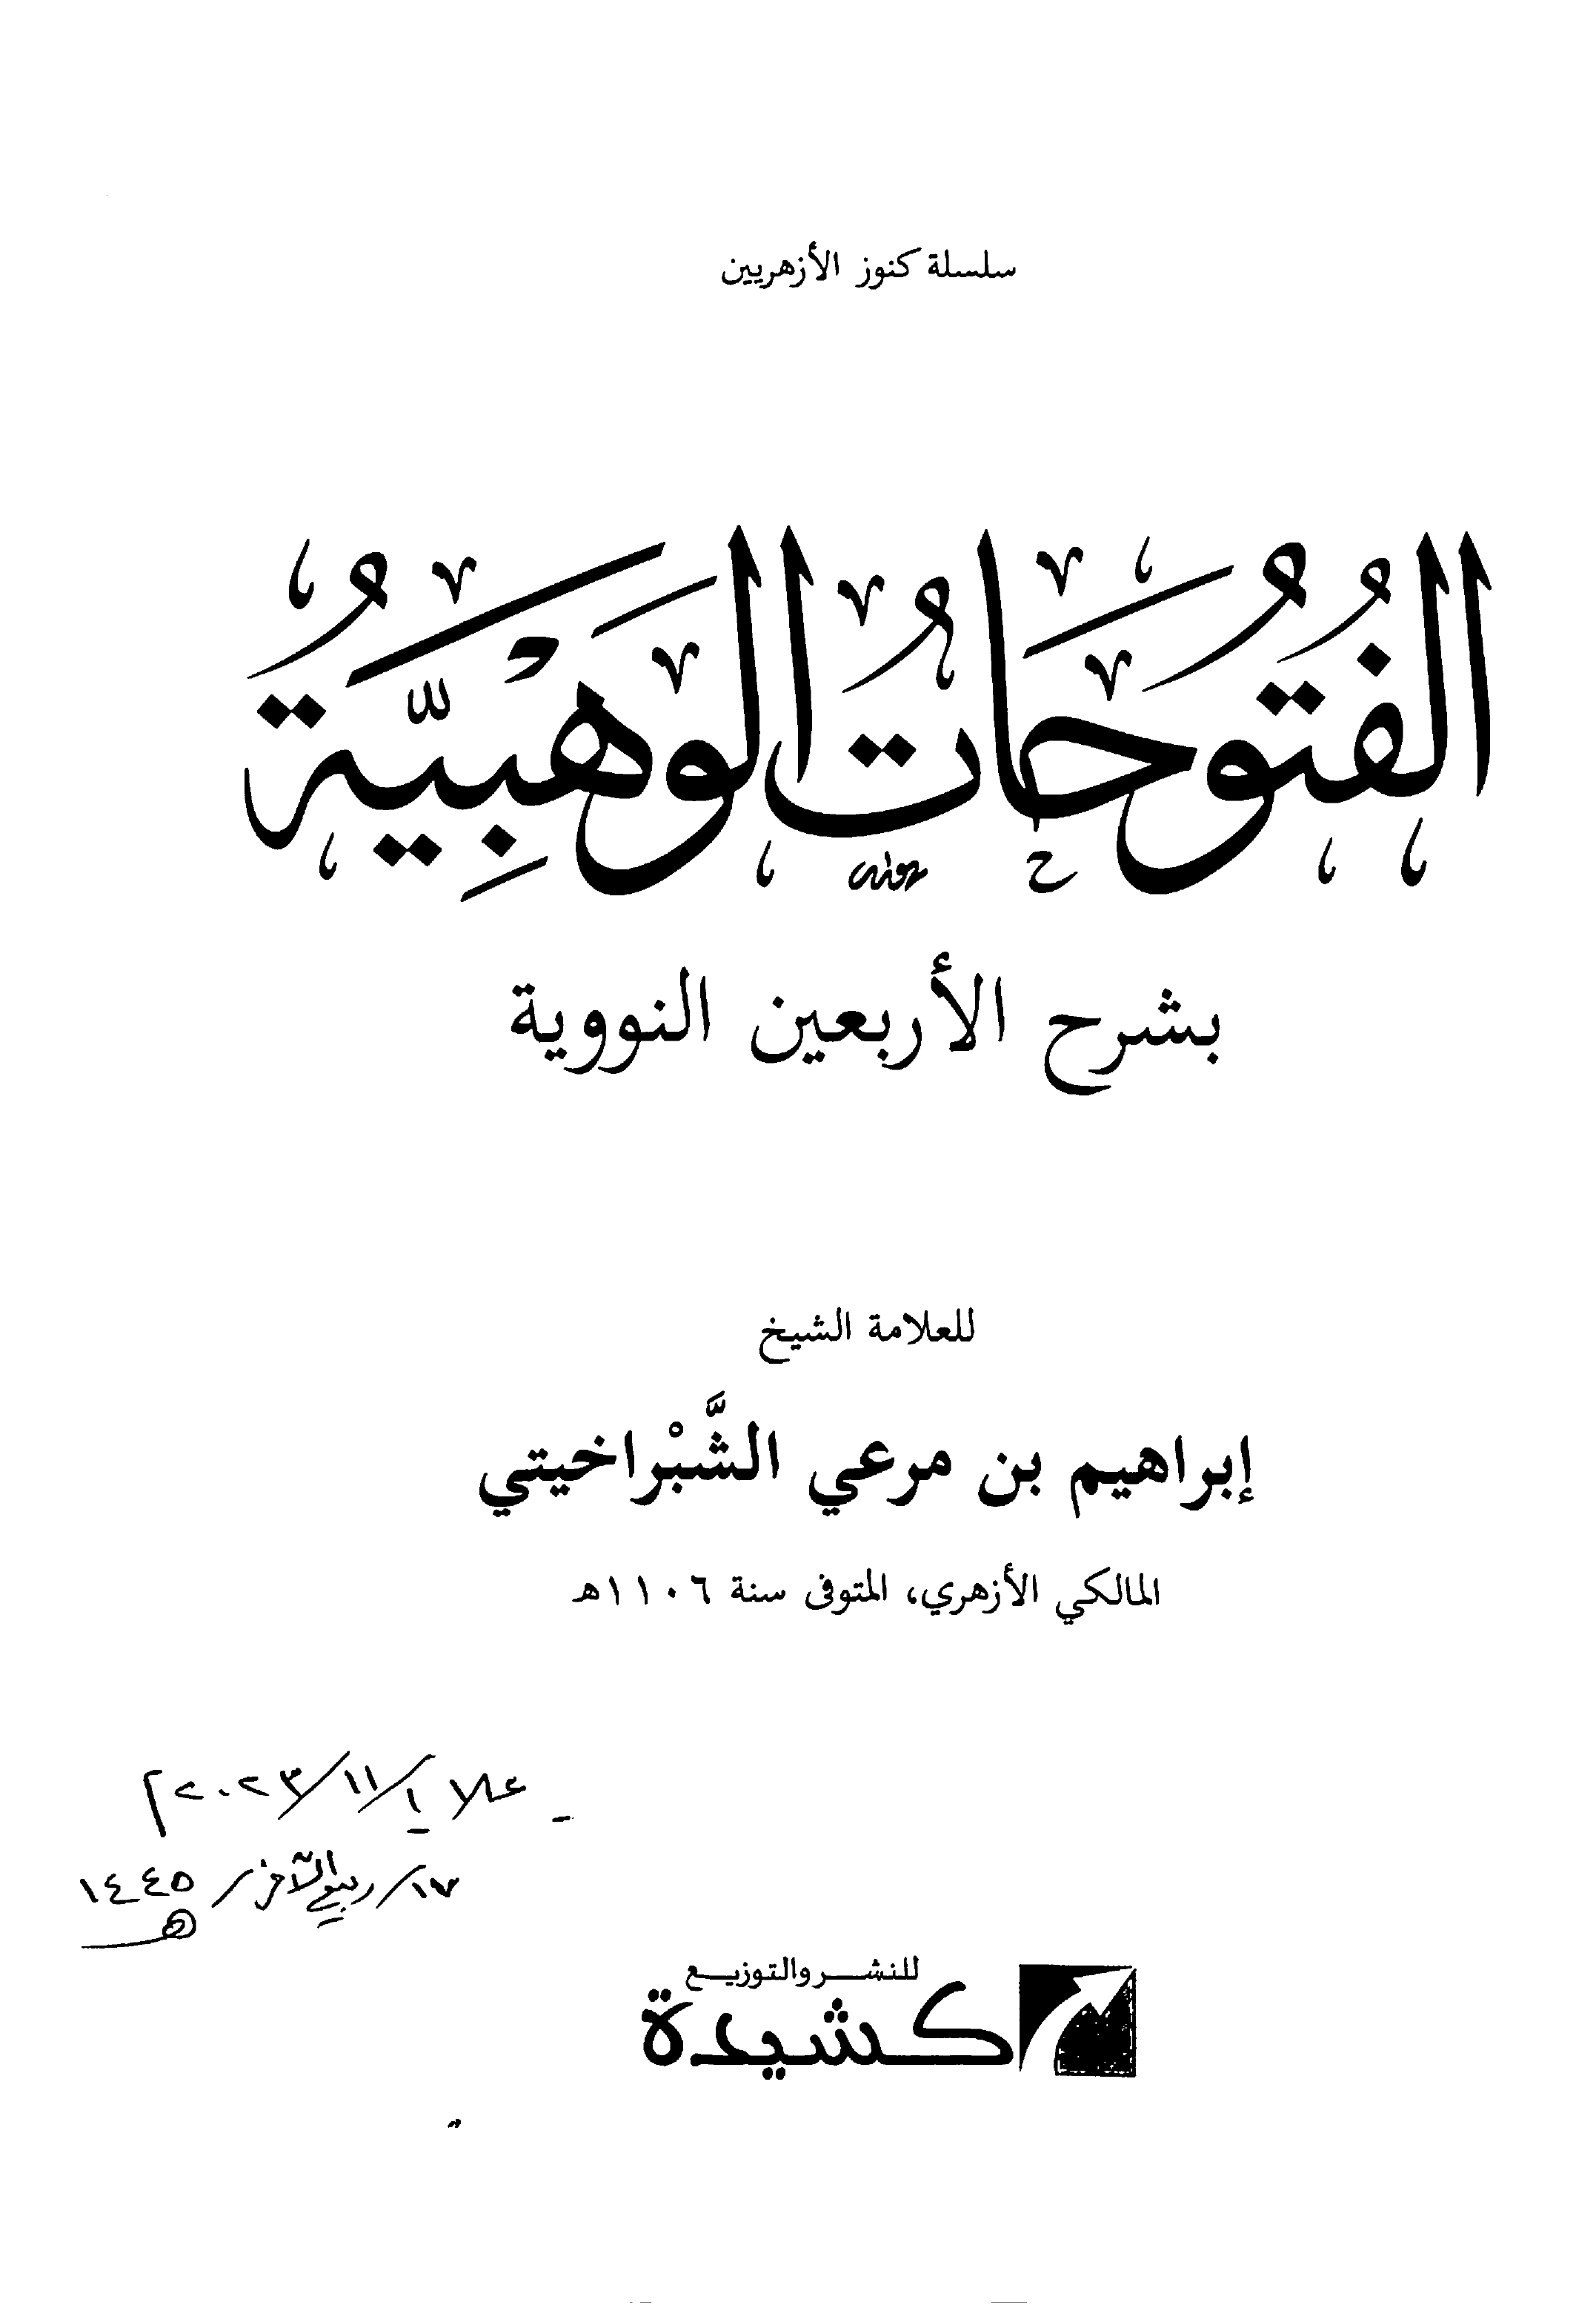 سلسلة كنوز الأزهريين
الفُتُوحَاتُ الوَهْبِيَّةُ
بشرح الأربعين النووية
للعلامة الشيخ
إبراهيم بن مرعي الشَّبْراخيتي
المالكي الأزهري، المتوفى سنة ١١٠٦هـ
١/١١/٢٠٢٣م
١٧/ربيع الآخر/١٤٤٥
هـ
للنشر والتوزيع
كشيدة